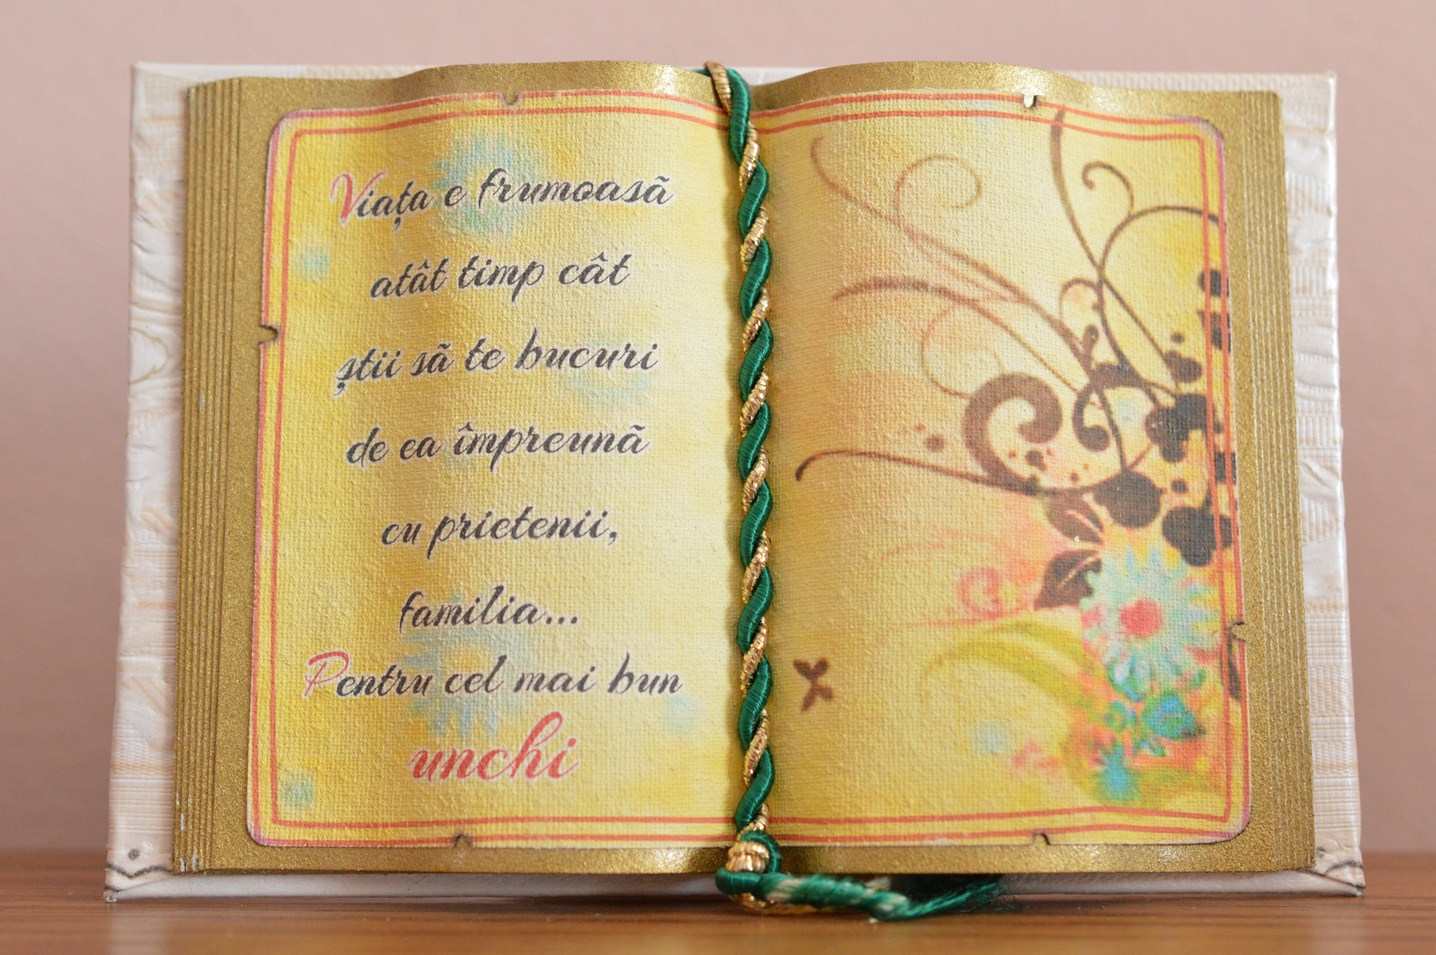 Viața e frumoasă
atât timp cât
știi să te bucuri
de ea împreună
cu prietenii,
familia...
Pentru cel mai bun
unchi